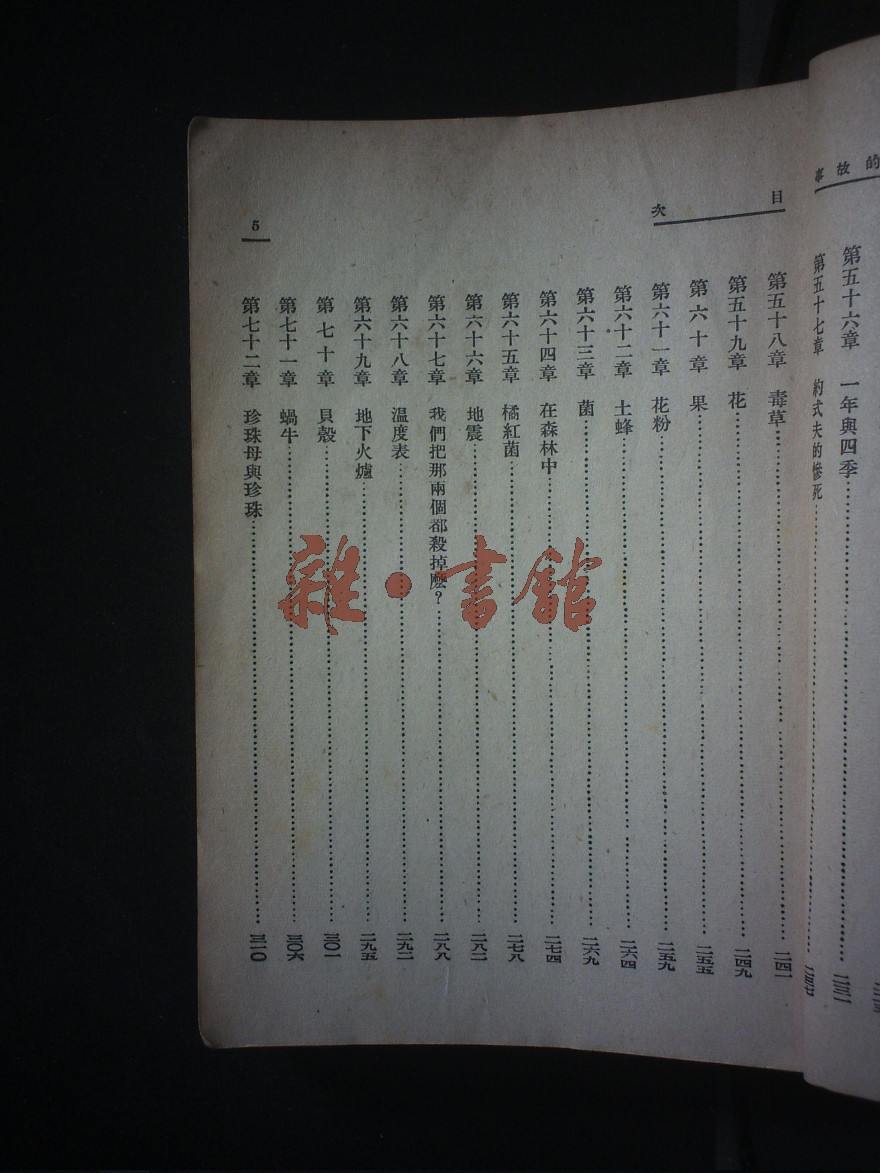 事故的
第五十六章　一年與四季……二三二
第五十七章　約式夫的慘死……二三七
目次
第五十八章　毒草……二四一
第五十九章　花……二四九
第六十章　果……二五五
第六十一章　花粉……二五九
第六十二章　土蜂……二六四
第六十三章　菌……二六九
第六十四章　在森林中……二七四
第六十五章　橘紅菌……二七八
第六十六章　地震……二八二
第六十七章　我們把那兩個都殺掉麽？……二八八
第六十八章　溫度表……二九二
第六十九章　地下火爐……二九五
第七十章　貝殼……三〇一
第七十一章　蝸牛……三〇六
第七十二章　珍珠母與珍珠……三一〇
5
雜·書館